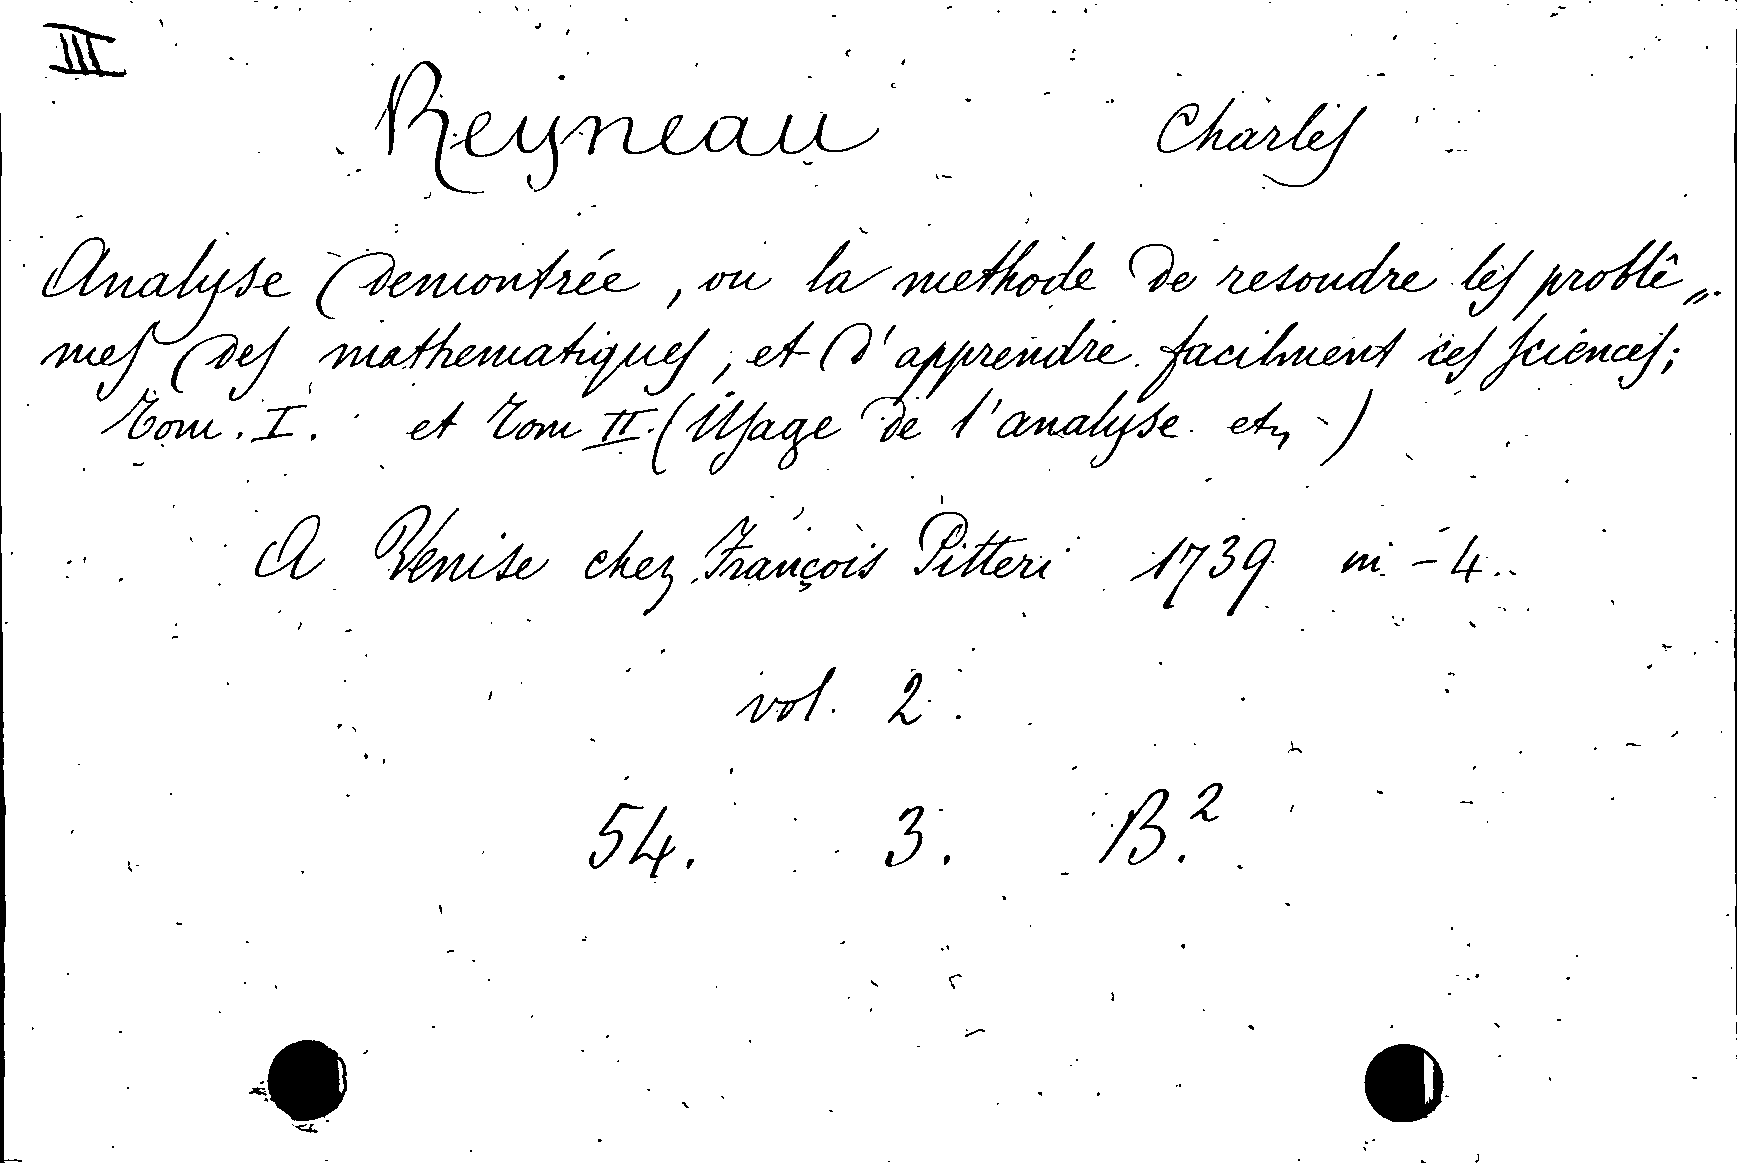 III
Reyneau Charles
Analyse demontrée, ou la methode de resoudre les problê„
mes des mathematiques, et d'apprendre facilment ces sciences;
Tom. I. et Tom II. (Usage de l'analyse etc)
A Venise chez François Pitteri 1739 in-4.
vol. 2.
54. 3. B.²